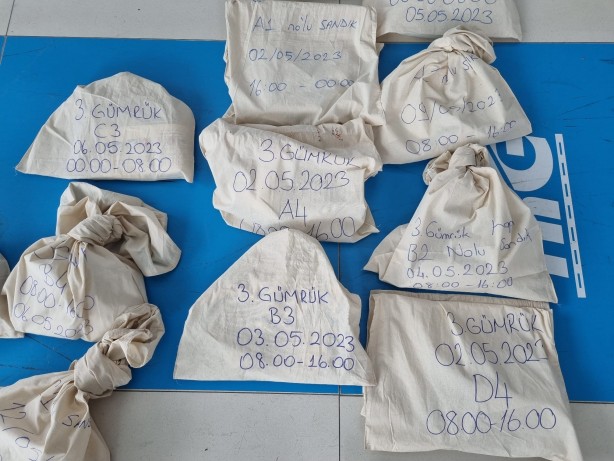 05.05.2023
A1 nolu SANDIK
02/05/2023
16:00 - 00:00
08:00 - 16:00
3. GÜMRÜK
C3
06.05.2023
00.00-08.00
3. GÜMRÜK
02.05.2023
A4
16.00
3. Gümrük
B2 Nolu Sandık
04.05.2023
08:00 - 16:00
B4
06.05.2023
3. GÜMRÜK
B3
03.05.2023
08.00-16.00
3.GÜMRÜK
02.05.2023
D4
08.00-16.00